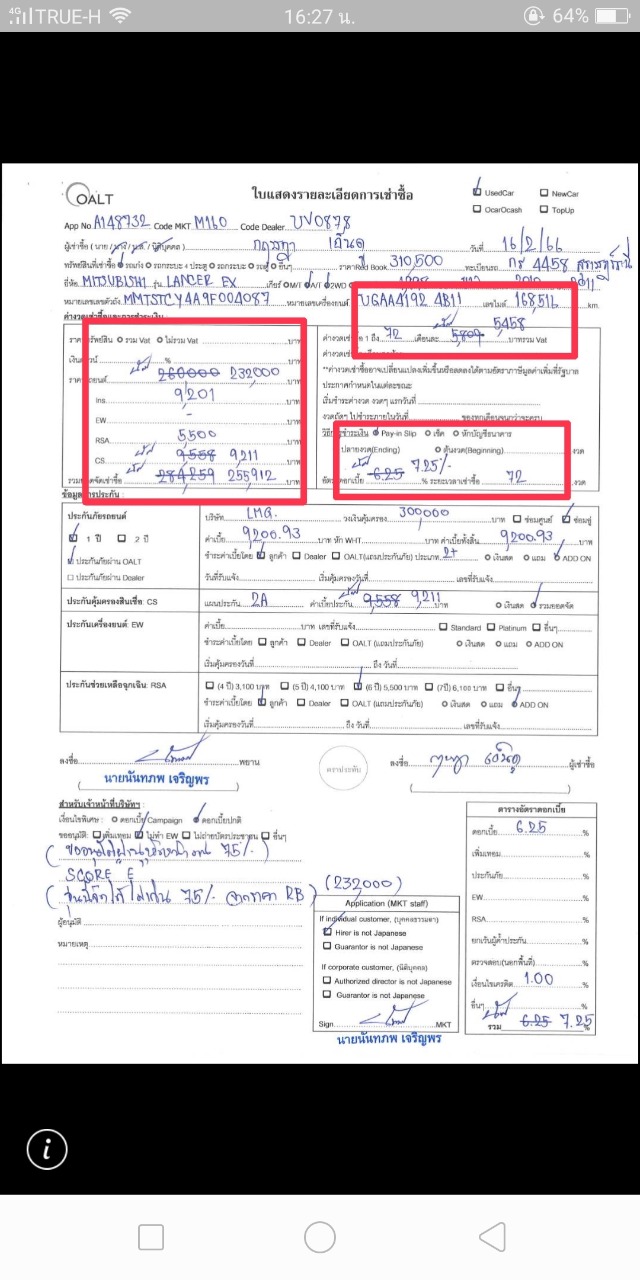 4G TRUE-H 16:27 น. 64%
OALT ใบแสดงรายละเอียดการเช่าซื้อ UsedCar NewCar
OcarOcash TopUp
App No. A148732 Code MKT M160 Code Dealer UV0878
ผู้เช่าซื้อ ( นาย / นาง / น.ส. / นิติบุคคล) วันที่ 16/2/66
ทรัพย์สินที่เช่าซื้อ รถเก๋ง รถกระบะ 4 ประตู รถกระบะ รถตู้ อื่นๆ ราคา Red Book 310,500 ทะเบียนรถ กร 4458 สุราษฎร์ธานี
ยี่ห้อ MITSUBISHI รุ่น LANCER EX เกียร์ M/T A/T 2WD 2010 2011
หมายเลขเลขตัวถัง MMTSTCY4A9F004087 หมายเลขเครื่องยนต์ UGAA4192 4B11 เลขไมล์ 168,516 km.
ค่างวดเช่าซื้อและการชำระเงิน 5,458
ราคาทรัพย์สิน รวม Vat ไม่รวม Vat บาท ค่างวดเช่าซื้อ 1 ถึง 72 เดือนละ 5,809 บาทรวม Vat
เงินดาวน์ % บาท ค่างวดเช่าซื้อ
ราคารถยนต์ 260000 232000 บาท **ค่างวดเช่าซื้ออาจเปลี่ยนแปลงเพิ่มขึ้นหรือลดลงได้ตามอัตราภาษีมูลค่าเพิ่มที่รัฐบาล
Ins 9,201 บาท ประกาศกำหนดในแต่ละขณะ
เริ่มชำระค่างวด งวดๆ แรกวันที่
EW - บาท งวดถัดๆ ไปชำระภายในวันที่ ของทุกเดือนจนกว่าจะครบ
RSA 5,500 บาท วิธีการชำระเงิน Pay-in Slip เช็ค หักบัญชีธนาคาร
CS 9,558 9,211 บาท ปลายงวด(Ending) ต้นงวด(Beginning) งวด
รวมยอดจัดเช่าซื้อ 284,259 255,912 บาท อัตราดอกเบี้ย 6.25 7.25/- % ระยะเวลาเช่าซื้อ 72 งวด
ข้อมูลการประกัน :
ประกันภัยรถยนต์ บริษัท LMG. วงเงินคุ้มครอง 300000 บาท ซ่อมศูนย์ ซ่อมอู่
1 ปี 2 ปี ค่าเบี้ย 9200.93 บาท หัก WHT บาท ค่าเบี้ยทั้งสิ้น 9200.93 บาท
ประกันภัยผ่าน OALT ชำระค่าเบี้ยโดย ลูกค้า Dealer OALT(แถมประกันภัย) ประเภท 2+ เงินสด แถม ADD ON
ประกันภัยผ่าน Dealer วันที่รับแจ้ง เริ่มคุ้มครองวันที่ เลขที่รับแจ้ง
ประกันคุ้มครองสินเชื่อ: CS แผนประกัน 2A ค่าเบี้ยประกัน 9,558 9,211 บาท เงินสด รวมยอดจัด
ประกันเครื่องยนต์: EW ค่าเบี้ย บาท เลขที่รับแจ้ง Standard Platinum อื่นๆ
ชำระค่าเบี้ยโดย ลูกค้า Dealer OALT (แถมประกันภัย) เงินสด แถม ADD ON
เริ่มคุ้มครองวันที่ ถึง วันที่
ประกันช่วยเหลือฉุกเฉิน: RSA (4 ปี) 3,100 บาท (5 ปี) 4,100 บาท (6 ปี) 5,500 บาท (7ปี) 6,100 บาท อื่นๆ
ชำระค่าเบี้ยโดย ลูกค้า Dealer OALT (แถมประกันภัย) เงินสด แถม ADD ON
เริ่มคุ้มครองวันที่ ถึง วันที่ เลขที่รับแจ้ง
ลงชื่อ พยาน ตราประทับ ลงชื่อ ผู้เช่าซื้อ
นายนันทภพ เจริญพร
สำหรับเจ้าหน้าที่บริษัทฯ : ตารางอัตราดอกเบี้ย
เงื่อนไขพิเศษ : ดอกเบี้ย Campaign ดอกเบี้ยปกติ ดอกเบี้ย 6.25 %
ขออนุมัติ: เพิ่มเทอม ไม่ทำ EW ไม่ถ่ายบัตรประชาชน อื่นๆ เพิ่มเทอม %
75/- ) ประกันภัย %
SCORE E (232000)
75/- จากราคา RB ) EW %
Application (MKT staff)
ผู้อนุมัติ If individual customer, (บุคคลธรรมดา) RSA %
Hirer is not Japanese
หมายเหตุ Guarantor is not Japanese ยกเว้นผู้ค้ำประกัน %
If corporate customer, (นิติบุคคล) ตรวจสอบ(นอกพื้นที่) %
Authorized director is not Japanese เงื่อนไขเครดิต 1.00 %
Guarantor is not Japanese อื่นๆ %
Sign MKT รวม 6.25 7.25 %
นายนันทภพ เจริญพร